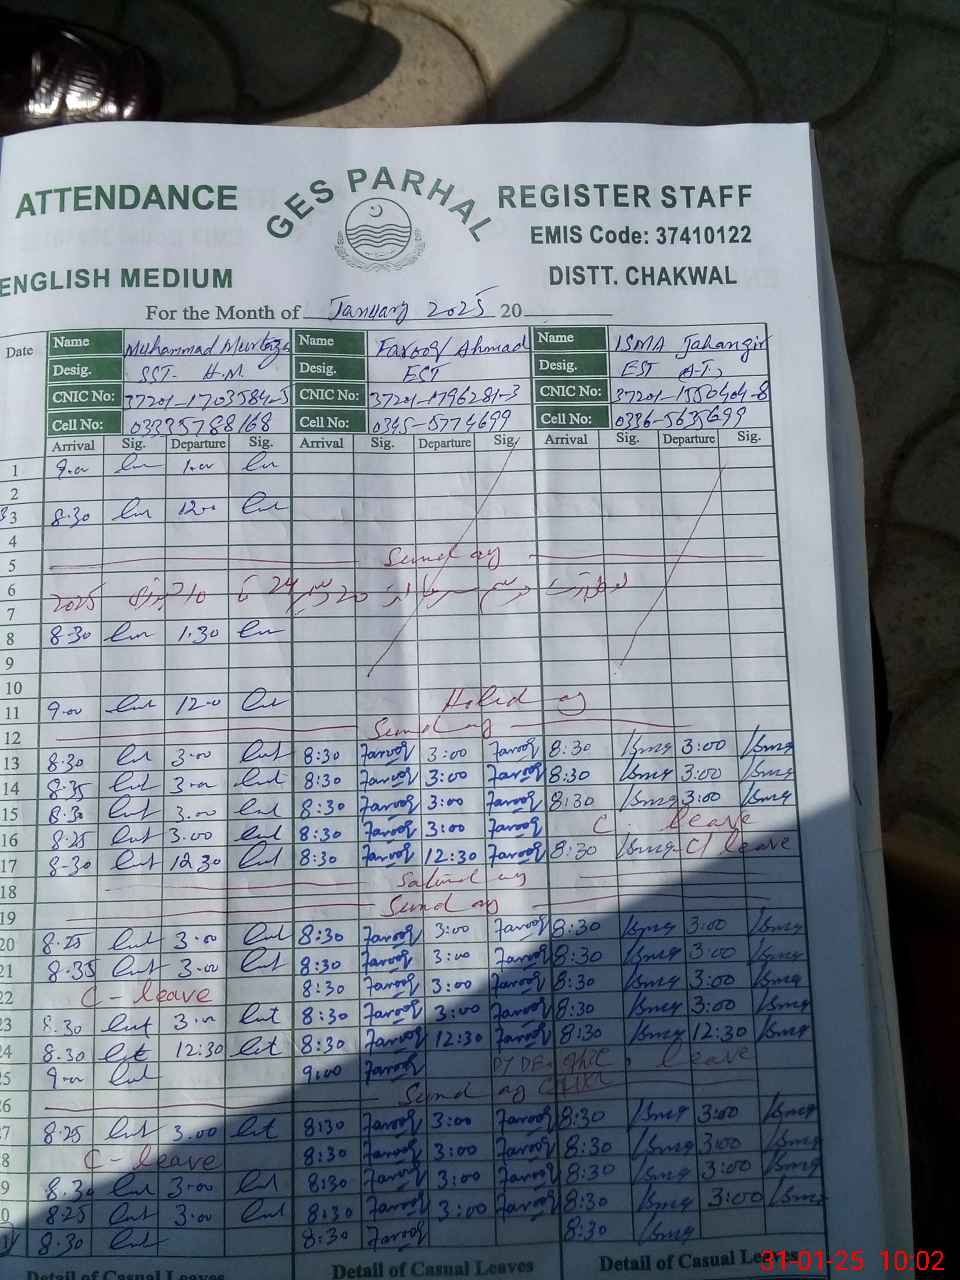 GES PARHAL
ATTENDANCE REGISTER STAFF
EMIS Code: 37410122
ENGLISH MEDIUM DISTT. CHAKWAL
For the Month of January 2025 20
Date Name Muhammad Murtaza Name Farooq Ahmad Name ISMA Jahangir
Desig. SST- H.M Desig. EST Desig. EST
CNIC No: 37201-1703584-5 CNIC No: 37201-1796281-3 CNIC No: 37201-1550404-8
Cell No: 03335788168 Cell No: 0345-5774699 Cell No: 0336-5635699
Arrival Sig. Departure Sig. Arrival Sig. Departure Sig. Arrival Sig. Departure Sig.
1 9.00 1.00
2
3 8.30 12.00
4
5 Sunday
6
7 2025
8 8.30 1.30
9
10
11 9.00 12.00 Holiday
12 Sunday
13 8.30 3.00 8:30 Farooq 3:00 Farooq 8:30 Isma 3:00 Isma
14 8.35 3.00 8:30 Farooq 3:00 Farooq 8:30 Isma 3:00 Isma
15 8.30 3.00 8:30 Farooq 3:00 Farooq 8:30 Isma 3:00 Isma
16 8.25 3.00 8:30 Farooq 3:00 Farooq C. leave
17 8-30 12.30 8:30 Farooq 12:30 Farooq 8:30 Isma C/ leave
18 Saturday
19 Sunday
20 8.25 3.00 8:30 Farooq 3:00 Farooq 8:30 Isma 3:00 Isma
21 8.35 3.00 8:30 Farooq 3:00 Farooq 8:30 Isma 3:00 Isma
22 C-leave 8:30 Farooq 3:00 Farooq 8:30 Isma 3:00 Isma
23 8.30 3.00 8:30 Farooq 3:00 Farooq 8:30 Isma 3:00 Isma
24 8.30 12:30 8:30 Farooq 12:30 Farooq 8:30 Isma 12:30 Isma
25 9.00 9:00 Farooq leave
26 Sunday
27 8.25 3.00 8:30 Farooq 3:00 Farooq 8:30 Isma 3:00 Isma
8 C-leave 8:30 Farooq 3:00 Farooq 8:30 Isma 3:00 Isma
9 8.30 3.00 8:30 Farooq 3:00 Farooq 8:30 Isma 3:00 Isma
0 8.25 3.00 8:30 Farooq 3:00 Farooq 8:30 Isma 3:00 Isma
8.30 8:30 Farooq 8:30 Isma
Detail of Casual Leaves Detail of Casual Leaves Detail of Casual Leaves
31-01-25 10:02